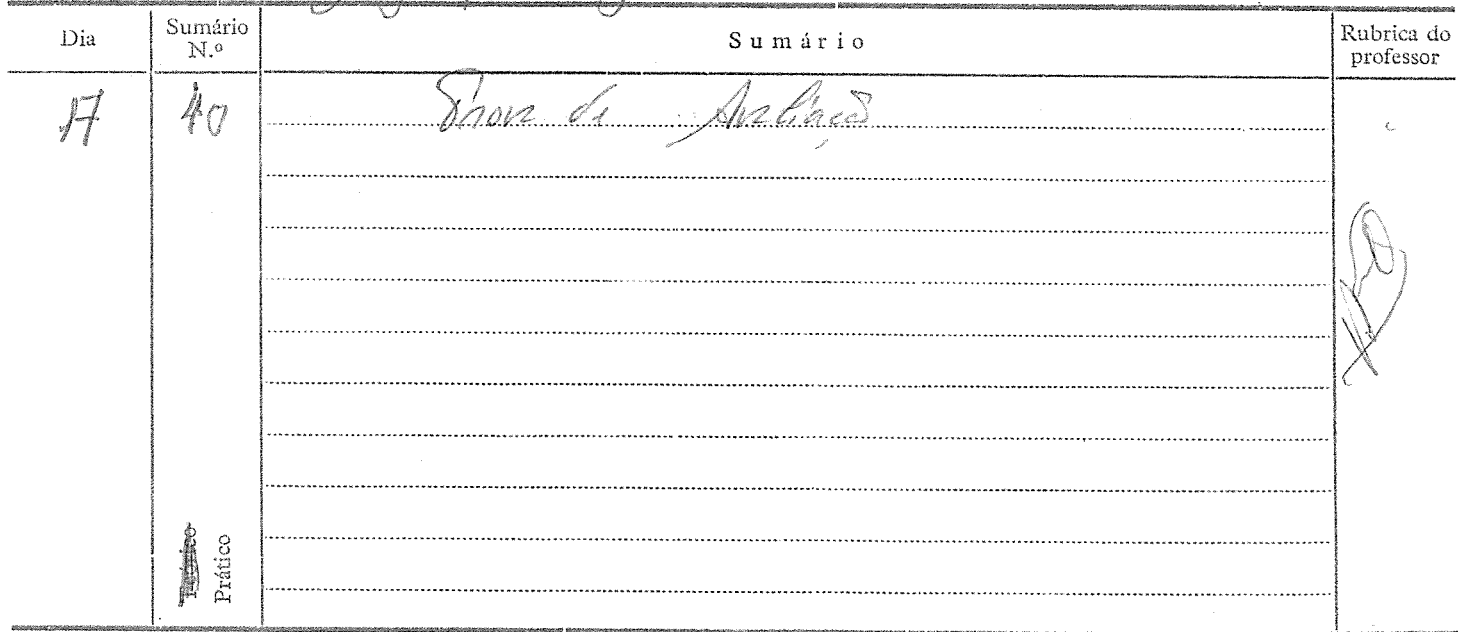 Dia Sumário N.º Sumário Rubrica do professor
17 40 Prova de Avaliação
Prático